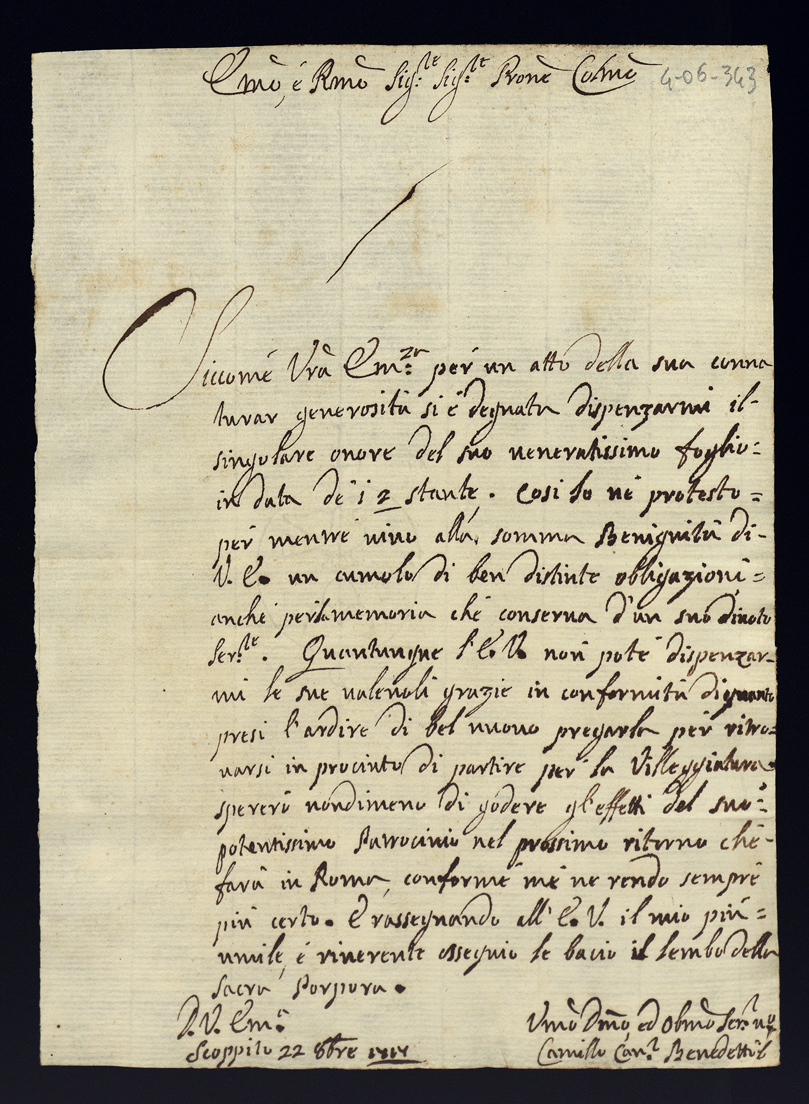 Emo, è Rmo Sig.re Sig.re Prone Colmo 4-06-343
Siccome Vra Em.za per un atto della sua conna
turar generosità si è degnata dispenzarmi il-
singolare onore del suo veneratissimo foglio=
in data de 12 stante. Così Io né protesto=
per mentre vivo alla somma Benignità di-
V. E. un cumolo di ben distinte obligazioni=
anche per la memoria che conserva d'un suo divoto
Ser.re. Quantunque l'E.V. non poté dispenzar-
mi le sue valevoli grazie in conformità di quanto
presi l'ardire di bel nuovo pregarla per ritro-
varsi in procinto di partire per la Villeggiatura
spererò nondimeno di godere gl'effetti del suo=
potentissimo Patrocinio nel prossimo ritorno che-
farà in Roma, conforme mé ne rendo sempre
più certo. E rassegnando all'E.V. il mio più=
umile, è riverente ossequio le bacio il lembo della
sacra Porpora.
D. V. Em.a
Scoppito 22 8bre
Vmo Dmo, ed Obmo Ser.r
Camillo Can.co Benedetti